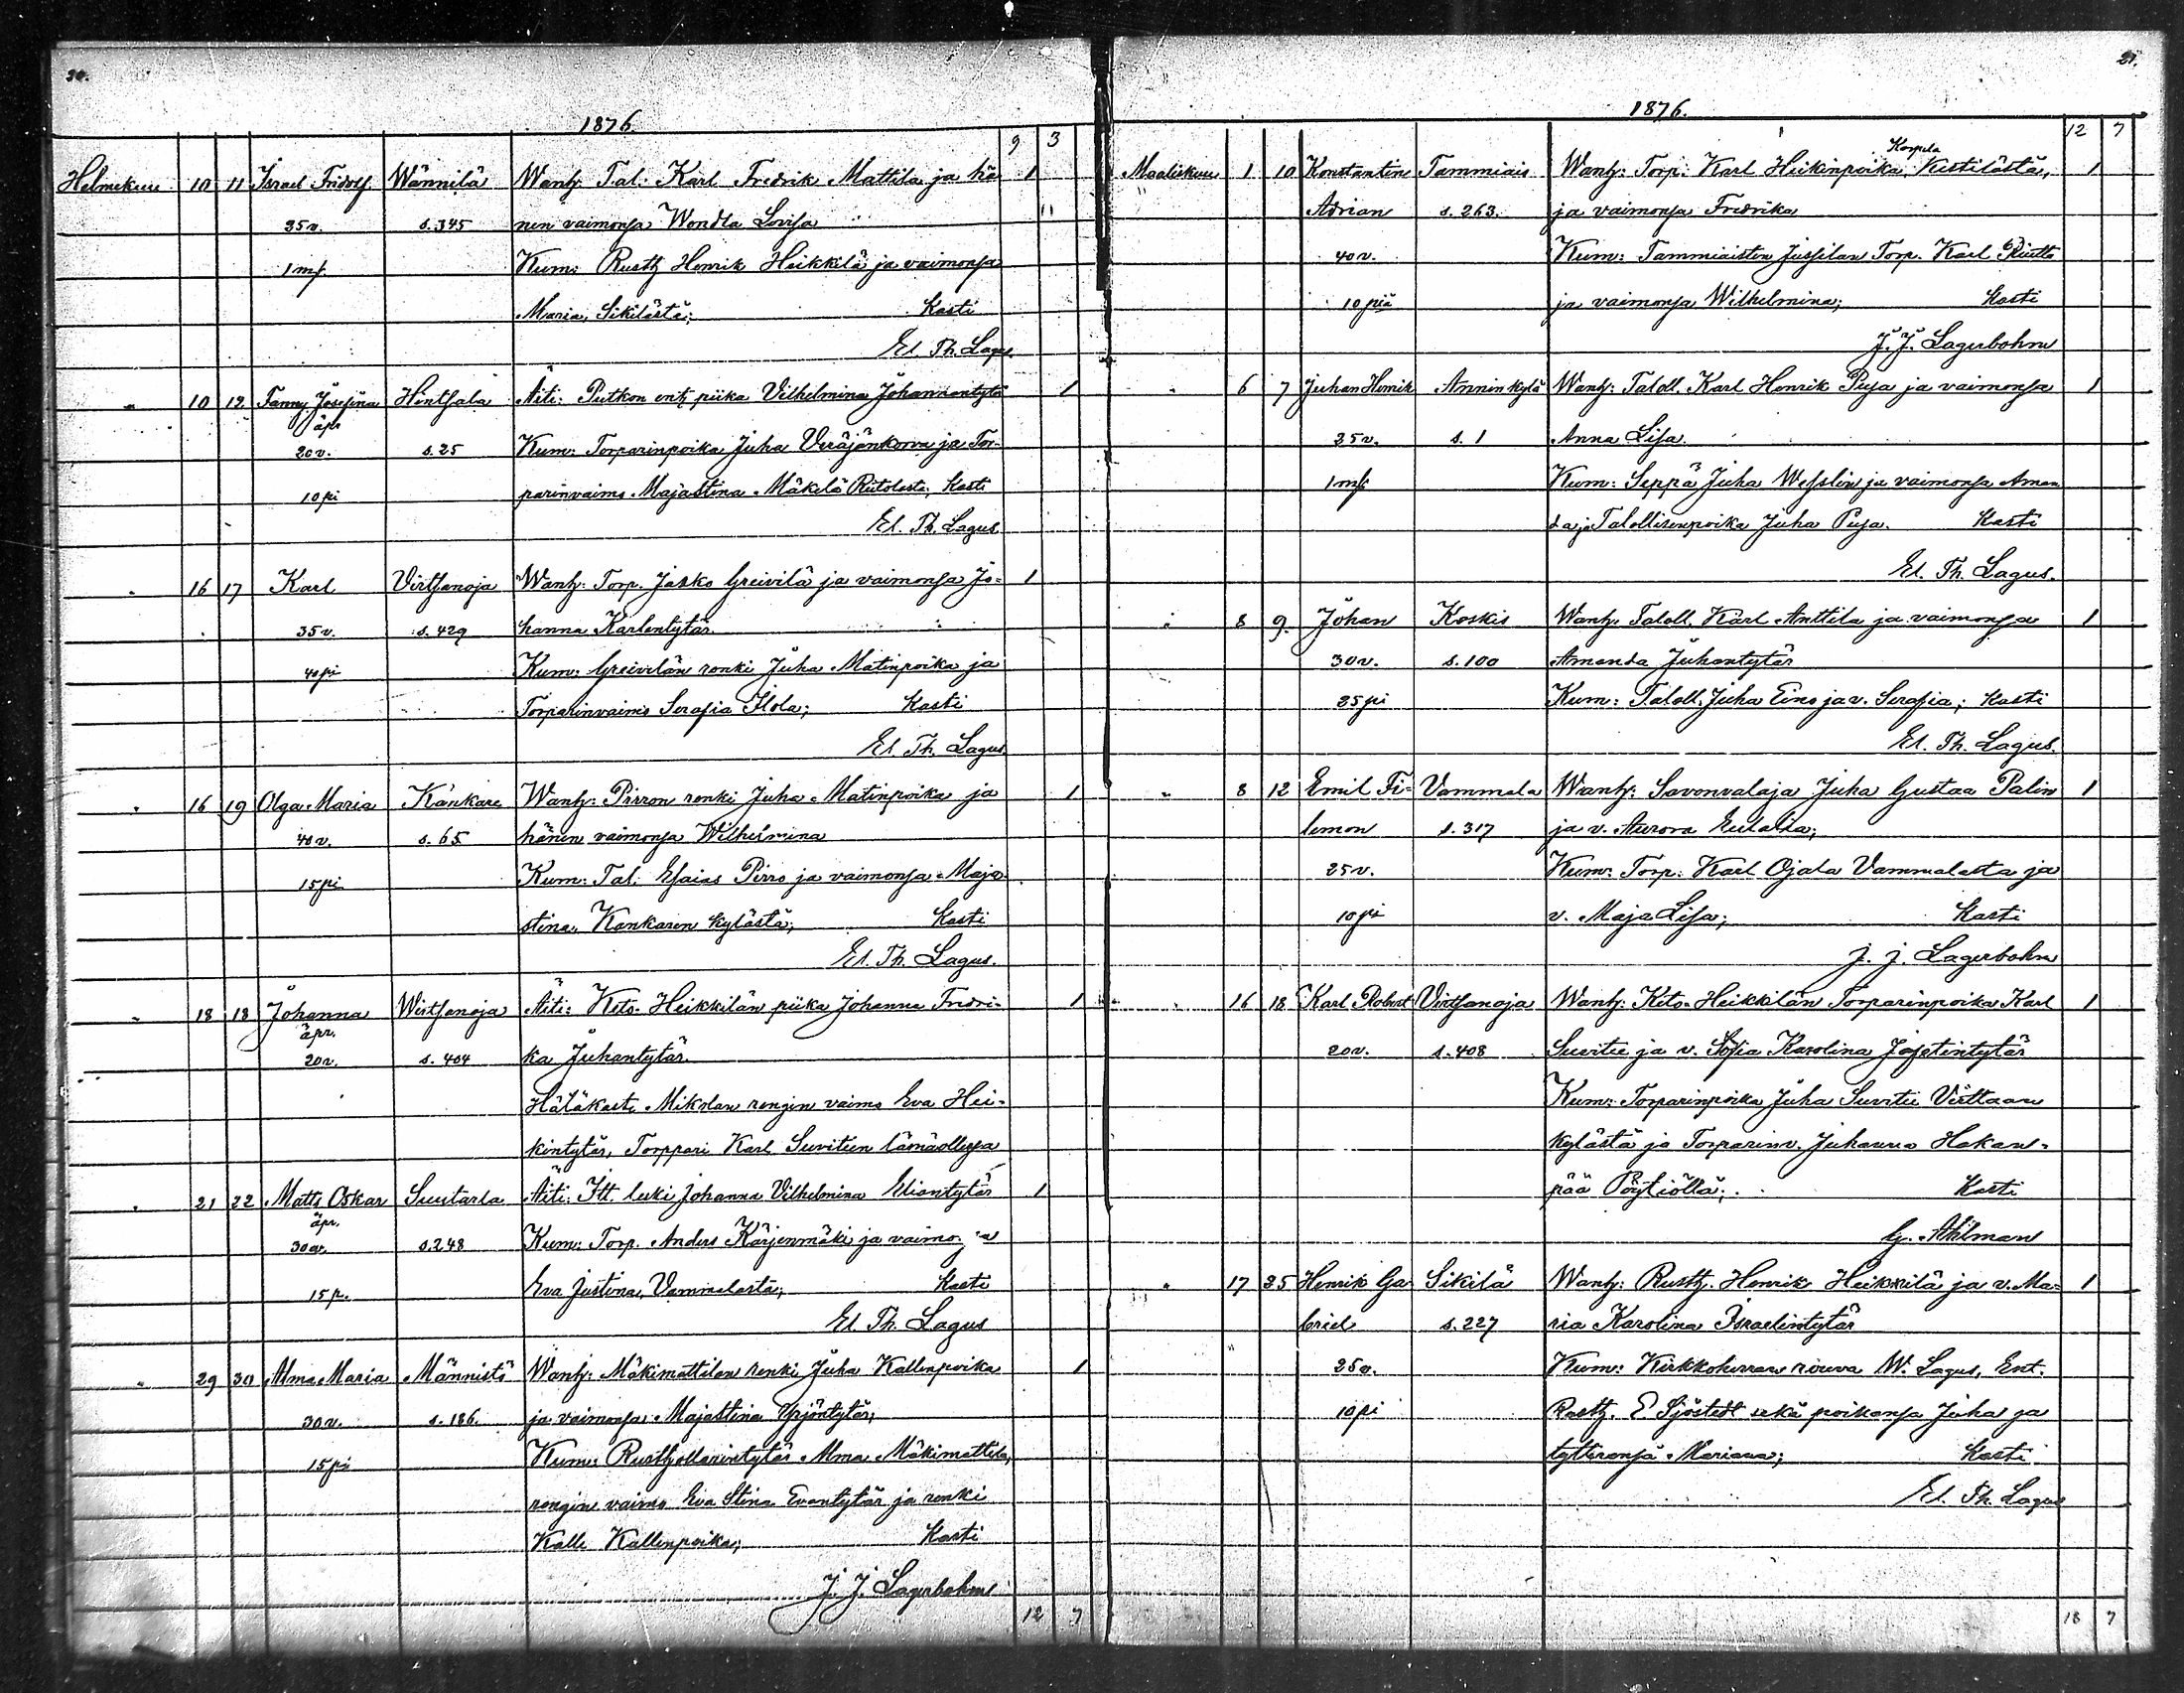 20.
1876.
9 3
Helmikuu 10 11 Israel Fridolf Wännilä Wanh: Tal: Karl Fredrik Mattila ja hä- 1
35 v. s. 345 nen vaimonsa Wendla Lovisa
1 mk. Kum: Rusth Henrik Heikkilä ja vaimonsa
Maria, Sikilästä; Kasti
El. Th. Lagus.
" 10 12 Fanny Josefina Hintsala Äiti: Putkon ent. piika Vilhelmina Johannentytär 1
äpr
20 v. s. 25 Kum: Torparinpoika Juha Veräjänkorva ja Tor-
10 pi parinvaimo Majastina Mäkelä Riitolasta; Kasti
El. Th. Lagus.
" 16 17 Karl Virtsanoja Wanh: Torp. Jaska Greivilä ja vaimonsa Jo- 1
35 v. s. 429 hanna Karlentytär
40 pi Kum: Greivilän renki Juha Matinpoika ja
Torparinvaimo Serafia Ilola; Kasti
El. Th. Lagus.
" 16 19 Olga Maria Kankare Wanh: Pirron renki Juha Matinpoika ja 1
40 v. s. 65 hänen vaimonsa Wilhelmina
15 pi Kum: Tal. Esaias Pirro ja vaimonsa Maja
stina, Kankaren kylästä; Kasti
El. Th. Lagus.
" 18 18 Johanna Wirtsanoja Äiti: Keto-Heikkilän piika Johanna Fredri- 1
äpr.
20 v. s. 404 ka Juhantytär.
Hätäkaste Mikolan rengin vaimo Eva Hei-
kintytär, Torppari Karl Suvitien läsnäollessa
" 21 22 Matts Oskar Suutarla Äiti: Itt. leski Johanna Vilhelmina Eliantytär 1
äpr.
30 v. s. 248 Kum: Torp. Anders Kärjenmäki ja vaimonsa
15 p. Eva Justina, Vammalasta; Kasti
El. Th. Lagus
" 29 30 Alma Maria Männistö Wanh: Mäkimattilan renki Juha Kallenpoika 1
30 v. s. 186 ja vaimonsa Majastina Yrjöntytär;
15 pi Kum: Rusthollarintytär Alma Mäkimattila,
rengin vaimo Eva Stina Evantytär ja renki
Kalle Kallenpoika; Kasti
J. J. Lagerbohm
12 7
21.
1876.
12 7
Korpela
Maaliskuu 1 10 Konstantin Tammiais Wanh: Torp. Karl Heikinpoika, Kestilästä, 1
Adrian s. 263. ja vaimonsa Fredrika
40 v. Kum: Tammiaisten Jussilan Torp. Karl Riutta
10 piä ja vaimonsa Wilhelmina; Kasti
J. J. Lagerbohm
" 6 7 Juhan Henrik Anninkylä Wanh: Taloll. Karl Henrik Pusa ja vaimonsa 1
35 v. s. 1 Anna Lisa.
1 mk Kum: Seppä Juha Wesslin ja vaimonsa Aman
da ja Talollisenpoika Juha Pusa. Kasti
El. Th. Lagus.
" 8 9. Johan Koskis Wanh. Taloll. Karl Anttila ja vaimonsa 1
30 v. s. 100 Amanda Juhantytär
25 pi Kum: Taloll. Juha Eino ja v. Serafia; Kasti
El. Th. Lagus.
" 8 12 Emil Fi- Vammala Wanh: Savonvalaja Juha Gustaa Palin 1
lemon s. 317 ja v. Aurora Eulalia;
25 v. Kum: Torp. Karl Ojala Vammalasta ja
10 pi v. Maja Lisa; Kasti
J. J. Lagerbohm
" 16 18 Karl Robert Virtsanoja Wanh: Keto-Heikkilän Torparinpoika Karl 1
20 v. s. 408 Suvitie ja v. Sofia Karolina Josefintytär
Kum: Torparinpoika Juha Suvitie Virttaan
kylästä ja Torparinv. Juhanna Hakan-
pää Pöytiöltä; Kasti
G. Ahlman
" 17 25 Henrik Ga Sikilä Wanh: Rusth. Henrik Heikkilä ja v. Ma- 1
briel s. 227 ria Karolina Israelintytär
25 v. Kum: Kirkkoherran rouva W. Lagus, Ent.
10 pi Rusth. E Sjöstedt sekä poikansa Juha ja
tyttärensä Mariana; Kasti
El. Th. Lagus
18 7